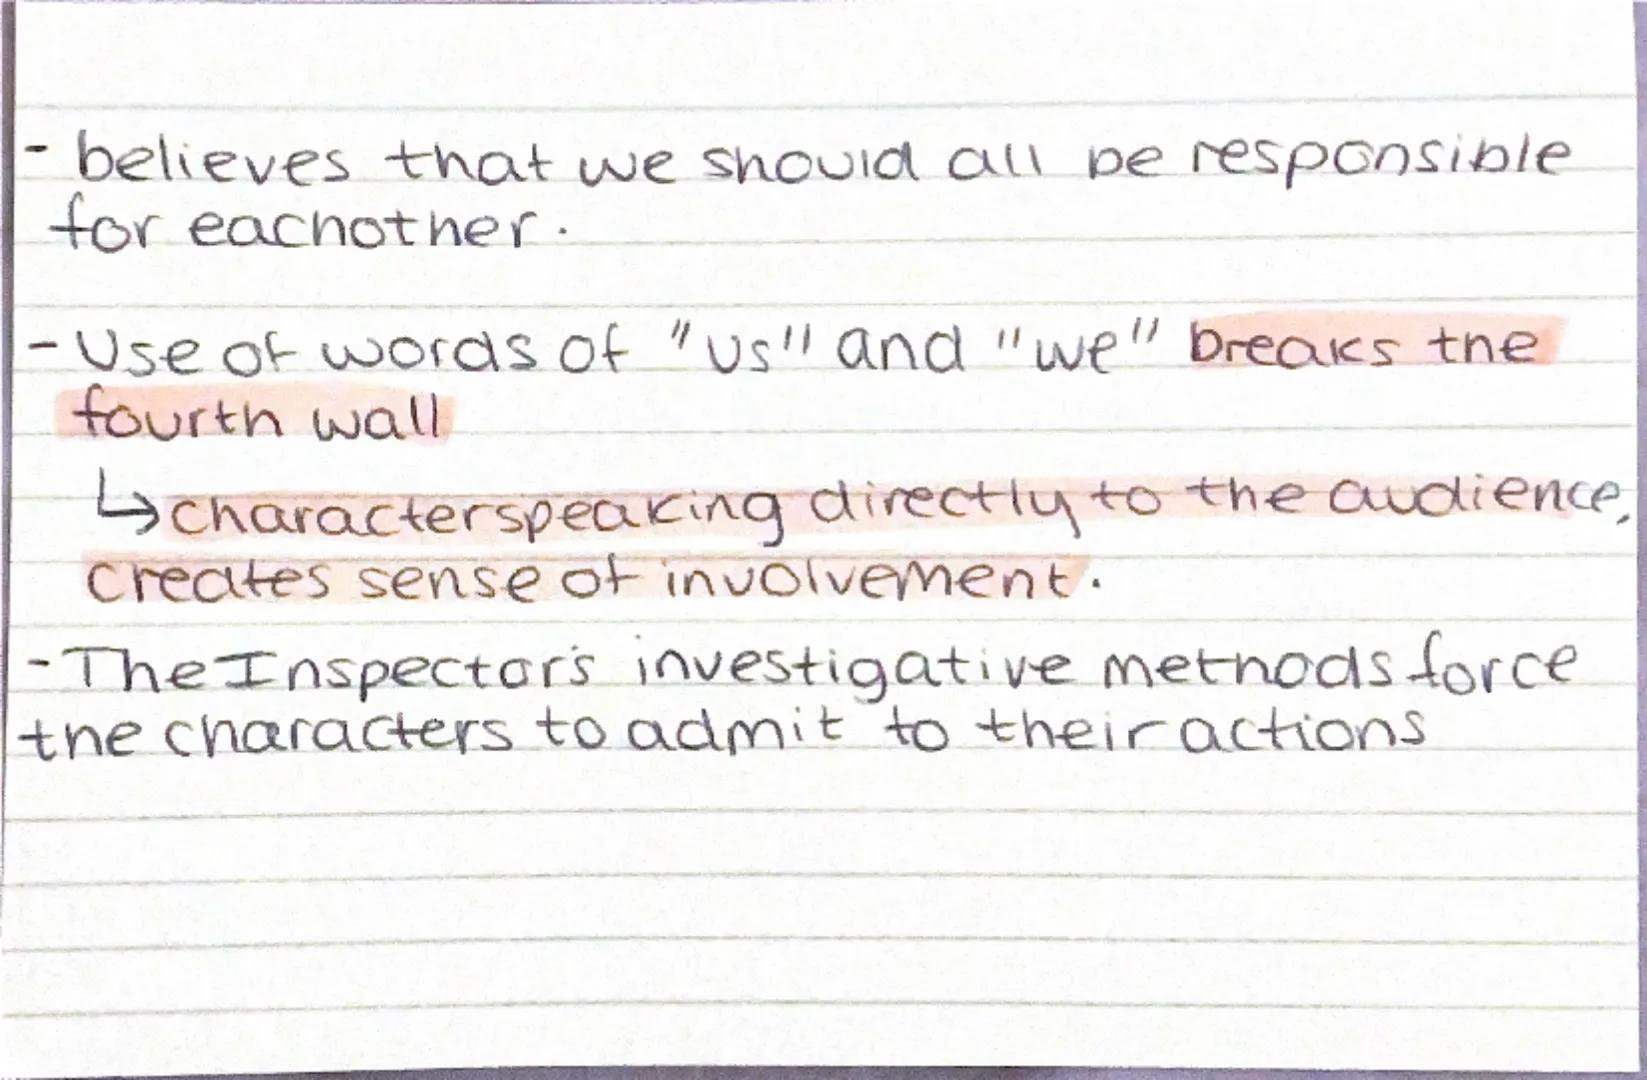 - believes that we should all be responsible
for eachother.
- Use of words of "us" and "we" breaks the
fourth wall
↳ character speaking directly to the audience,
creates sense of involvement.
- The Inspector's investigative methods force
the characters to admit to their actions